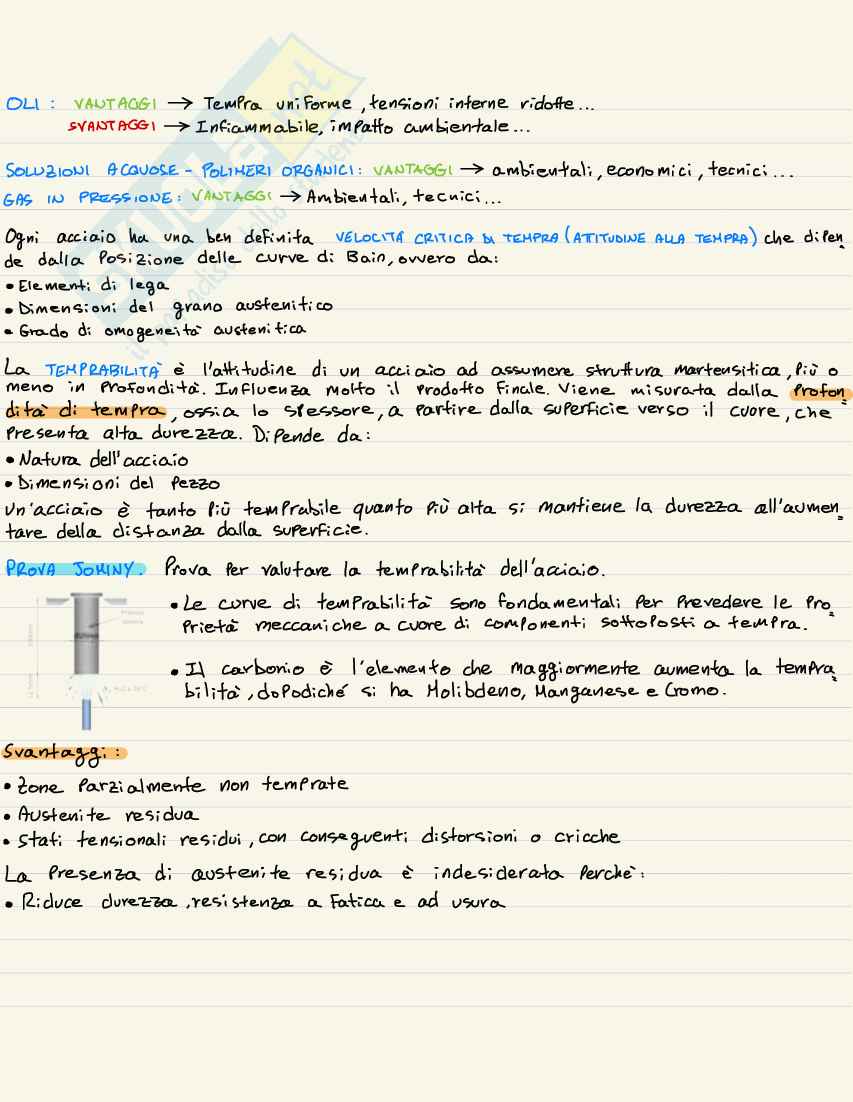 OLI: VANTAGGI → Tempra uniforme, tensioni interne ridotte...
SVANTAGGI → Infiammabile, impatto ambientale...
SOLUZIONI ACQUOSE - POLIMERI ORGANICI: VANTAGGI → ambientali, economici, tecnici...
GAS IN PRESSIONE: VANTAGGI → Ambientali, tecnici...
Ogni acciaio ha una ben definita VELOCITÀ CRITICA DI TEMPRA (ATTITUDINE ALLA TEMPRA) che dipen
de dalla posizione delle curve di Bain, ovvero da:
• Elementi di lega
• Dimensioni del grano austenitico
• Grado di omogeneità austenitica
La TEMPRABILITÀ è l'attitudine di un acciaio ad assumere struttura martensitica, più o
meno in profondità. Influenza molto il prodotto finale. Viene misurata dalla profon
dità di tempra, ossia lo spessore, a partire dalla superficie verso il cuore, che
presenta alta durezza. Dipende da:
• Natura dell'acciaio
• Dimensioni del pezzo
Un'acciaio è tanto più temprabile quanto più alta si mantiene la durezza all'aumen
tare della distanza dalla superficie.
PROVA JOMINY. Prova per valutare la temprabilità dell'acciaio.
• Le curve di temprabilità sono fondamentali per prevedere le pro
prietà meccaniche a cuore di componenti sottoposti a tempra.
• Il carbonio è l'elemento che maggiormente aumenta la tempra
bilità, dopodiché si ha Molibdeno, Manganese e Cromo.
Svantaggi:
• Zone parzialmente non temprate
• Austenite residua
• Stati tensionali residui, con conseguenti distorsioni o cricche
La presenza di austenite residua è indesiderata perchè:
• Riduce durezza, resistenza a fatica e ad usura